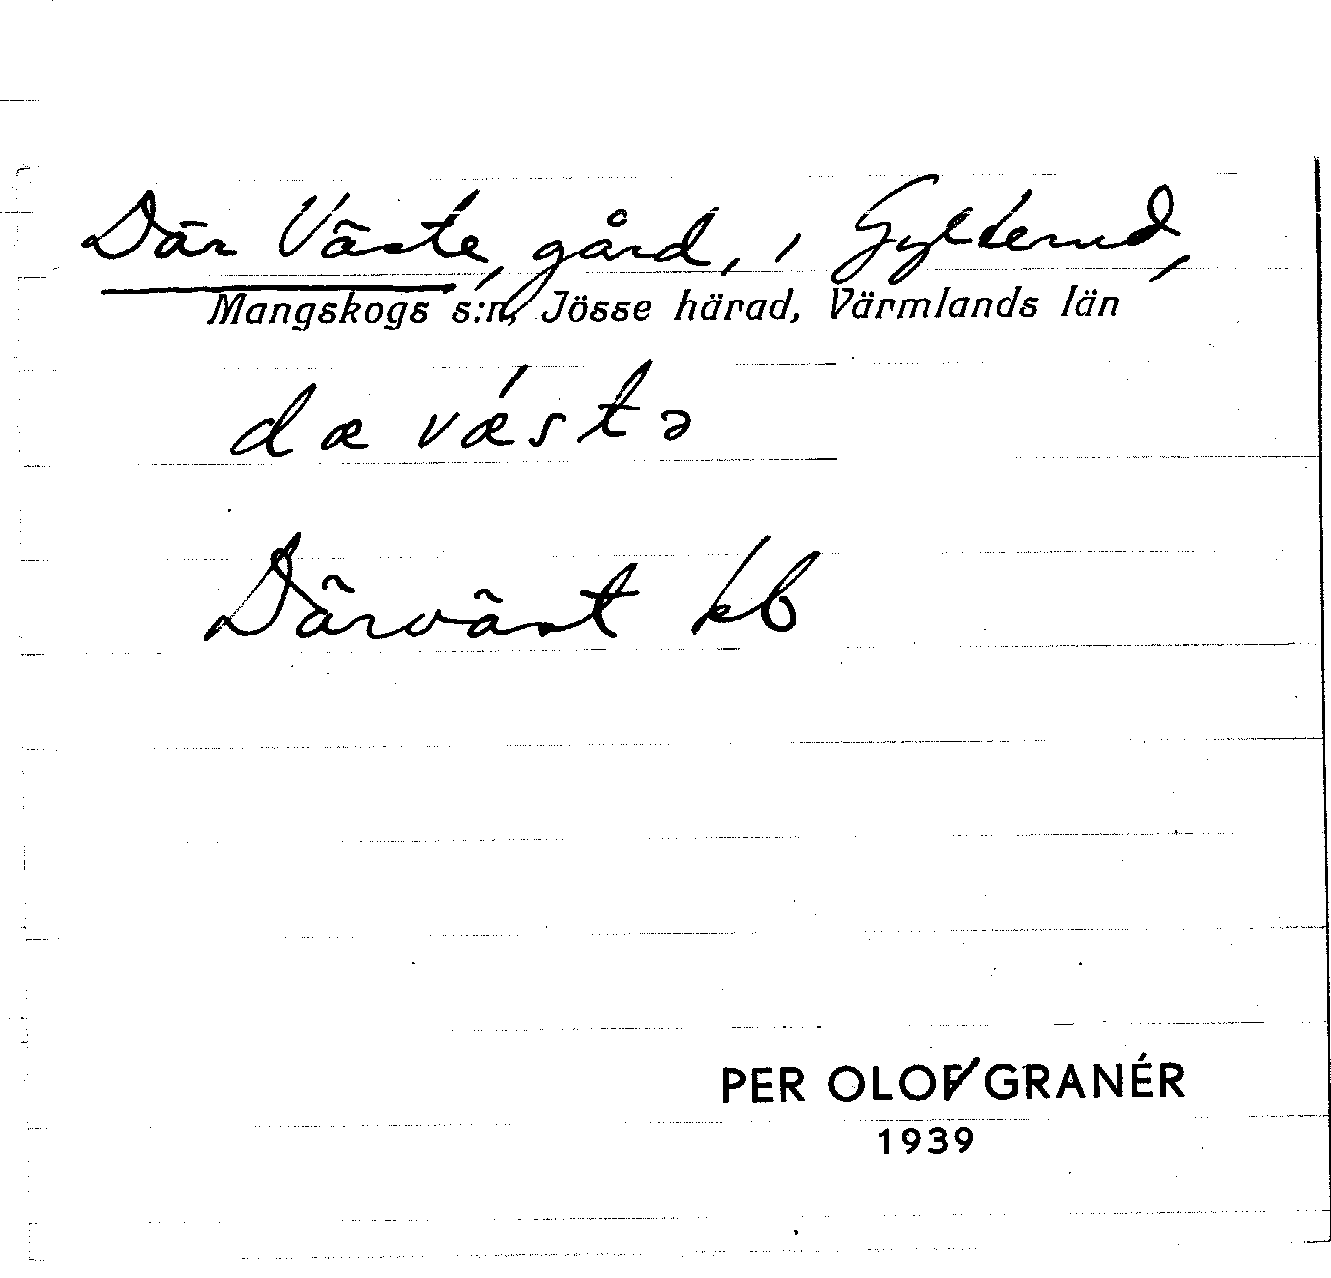 Där Väste, gård, i Gylterud,
Mangskogs s:n, Jösse härad, Värmlands län
dæ væ´stə
Därväst kb
PER OLOF GRANÉR
1939